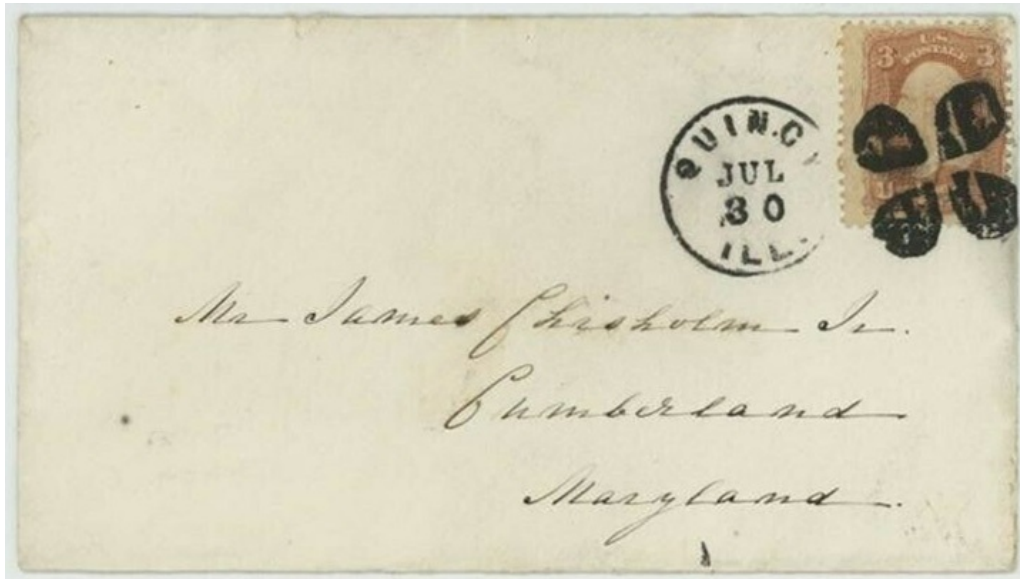 U.S.
POSTAGE
3 3
QUINCY
JUL
30
ILL.
Mr James Chisholm Jr.
Cumberland
Maryland.